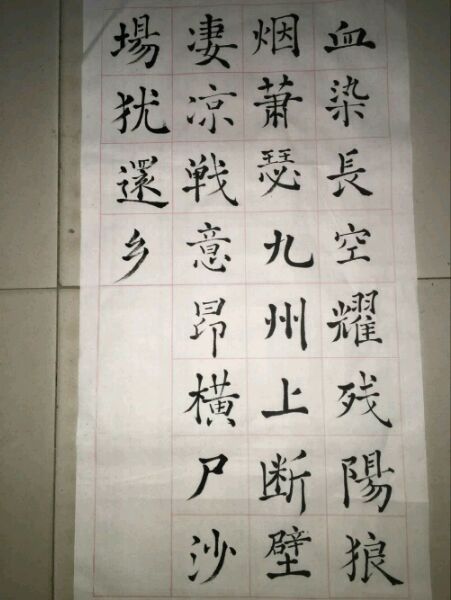 血染長空耀残陽狼
烟萧瑟九州上断壁
凄凉戦意昂横尸沙
場犹還乡